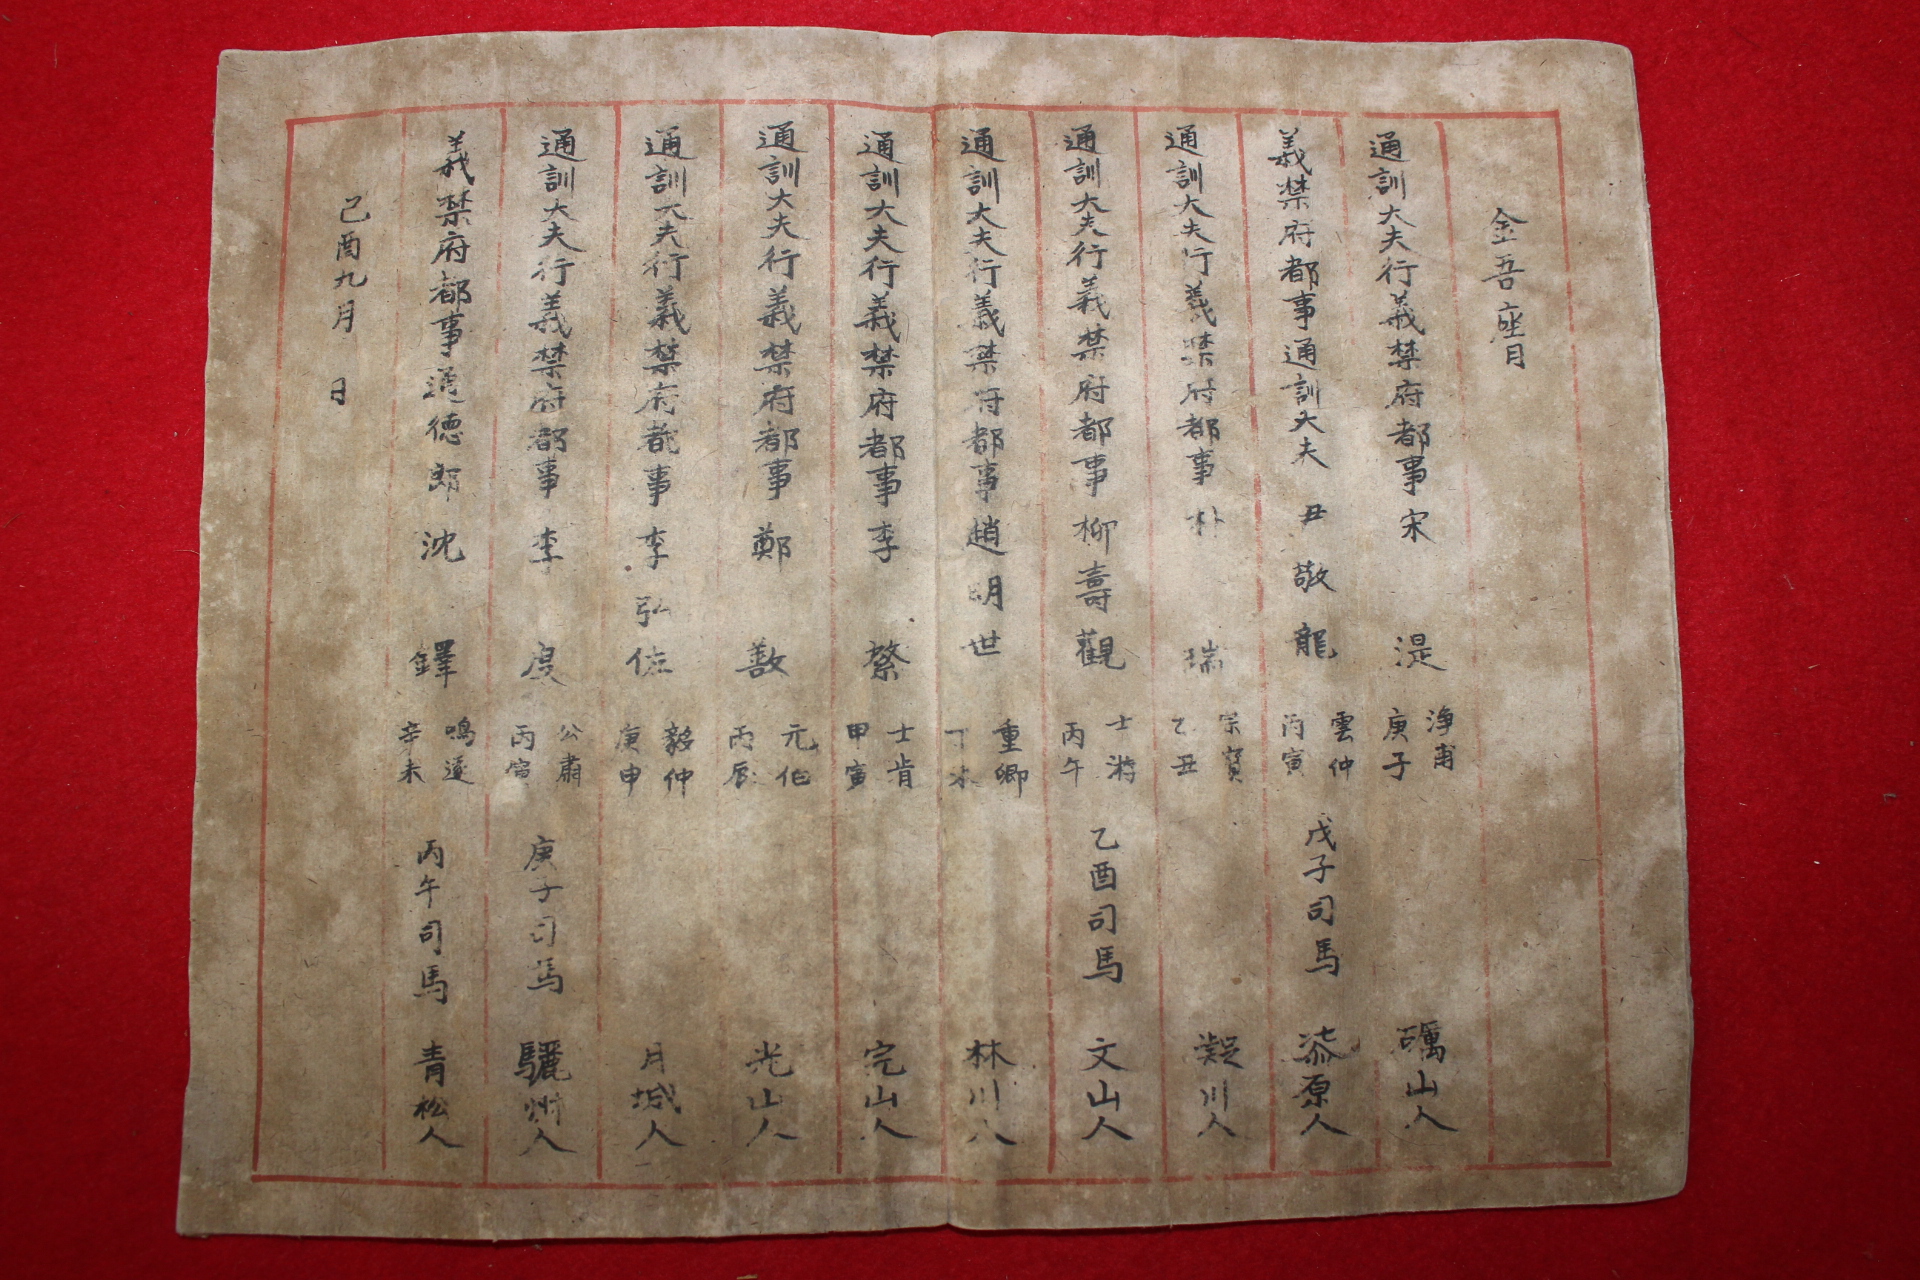 金吾座目
通訓大夫行義禁府都事宋 湜 淨甫 庚子 礪山人
義禁府都事通訓大夫 丑敬龍 雲仲 丙寅 戊子司馬 漆原人
通訓大夫行義禁府都事朴 瑞 宗寶 乙丑 凝川人
通訓大夫行義禁府都事柳壽觀 士游 丙午 乙酉司馬 文山人
通訓大夫行義禁府都事趙明世 重卿 丁 林川人
通訓大夫行義禁府都事李 㯳 士肯 甲寅 完山人
通訓大夫行義禁府都事鄭 敾 元伯 丙辰 光山人
通訓大夫行義禁府都事李弘佐 毅仲 庚申 月城人
通訓大夫行義禁府都事李 度 公肅 丙寅 庚子司馬 驪州人
義禁府都事通德郎沈 鐸 鳴遠 辛未 丙午司馬 青松人
己酉九月 日